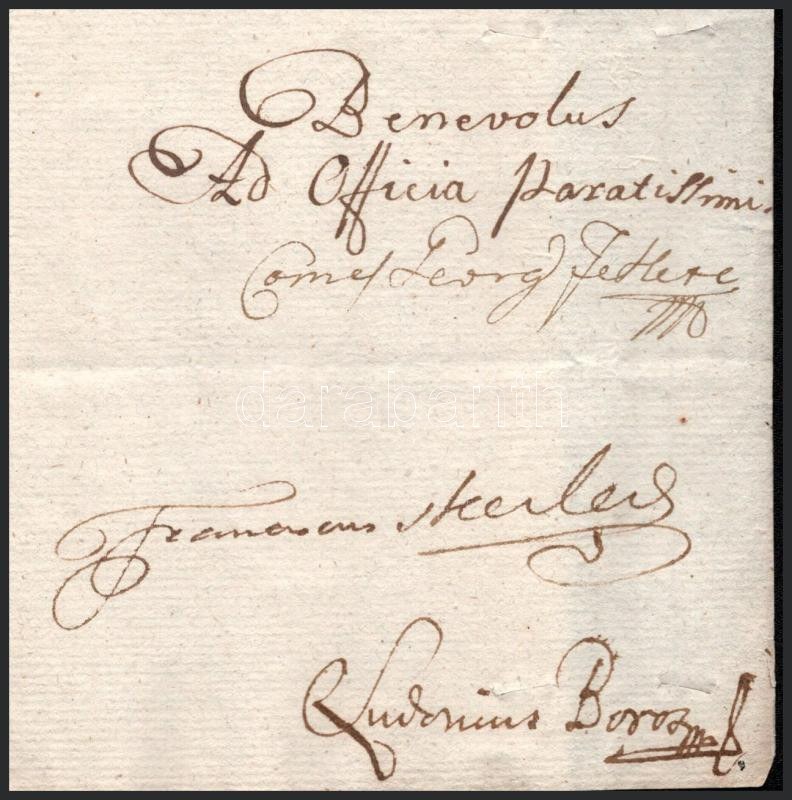 Benevolus
Ad Officia Paratissimi.
Comes Georg Fekete
darabanth
Franciscus
Ludovicus Boros